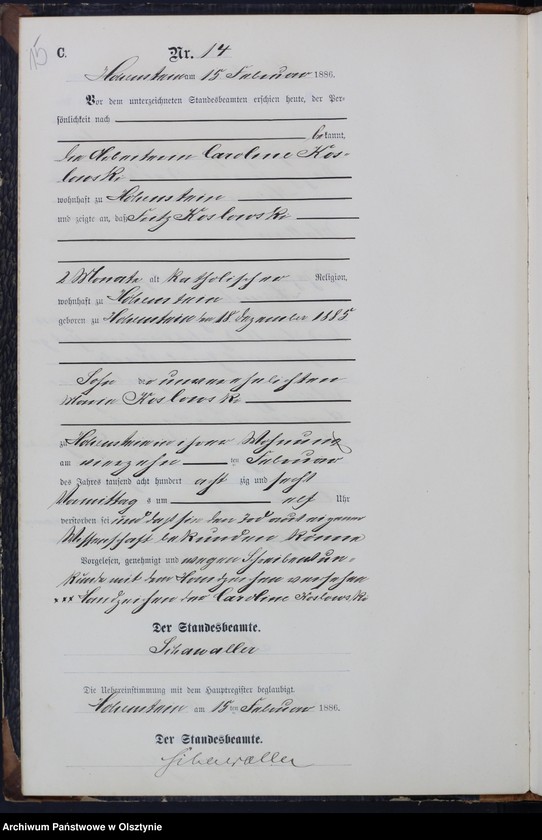 15
C. Nr. 14
Hohenstein am 15 Februar 1886.
Vor dem unterzeichneten Standesbeamten erschien heute, der Per-
sönlichkeit nach
bekannt,
die Arbeiterin Caroline Kos-
lowski
wohnhaft zu Hohenstein
und zeigte an, daß Fritz Koslowski
2 Monate alt katholischer Religion,
wohnhaft zu Hohenstein
geboren zu Hohenstein den 18 Dezember 1885
Sohn der unverehelichten
Koslowski
zu Hohenstein in ihrer Wohnung
am vierzehn ten Februar
des Jahres tausend acht hundert acht zig und sechs
Vormittag s um elf Uhr
verstorben sei und daß sie den Tod aus eigener
Wissenschaft bekunden könne
Vorgelesen, genehmigt und wegen Schreibensun-
kunde mit dem Handzeichen versehen
xxx Handzeichen der Caroline Koslowski
Der Standesbeamte.
Die Uebereinstimmung mit dem Hauptregister beglaubigt.
Hohenstein am 15 ten Februar 1886.
Der Standesbeamte.
Archiwum Państwowe w Olsztynie